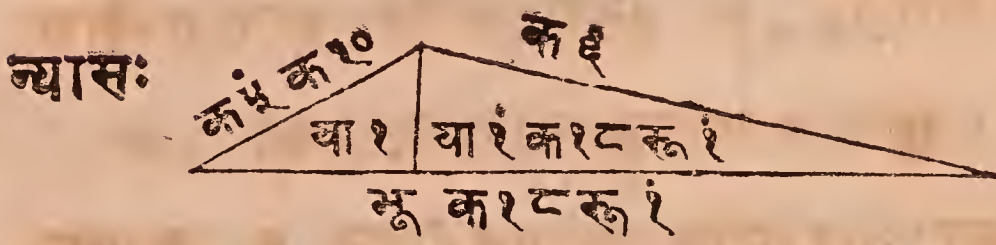 न्यासः
क ५ं क १०
क ६
या १
या १ं क १८ रू १ं
भू क १८ रू १ं